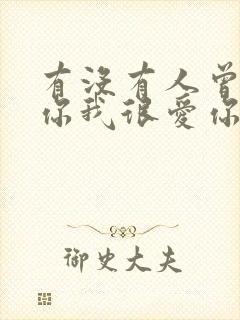 有没有人曾
你我很爱你
御史大夫